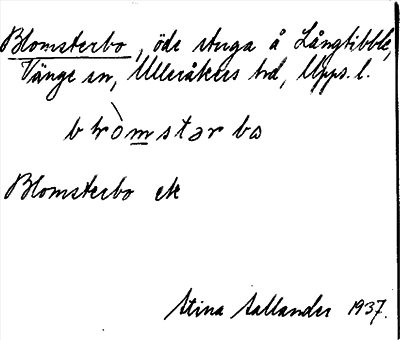 Blomsterbo, öde stuga å Långtibble,
Vänge sn, Ulleråkers hd, Upps. l.
blòmstər bo
Blomsterbo ek
Stina Sallander 1937.